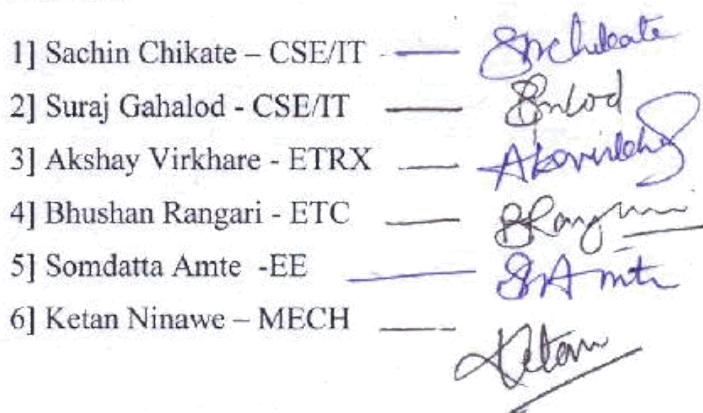 1] Sachin Chikate – CSE/IT — Smchikate
2] Suraj Gahalod - CSE/IT —
3] Akshay Virkhare - ETRX —
4] Bhushan Rangari - ETC —
5] Somdatta Amte -EE — SAmte
6] Ketan Ninawe – MECH — Ketan